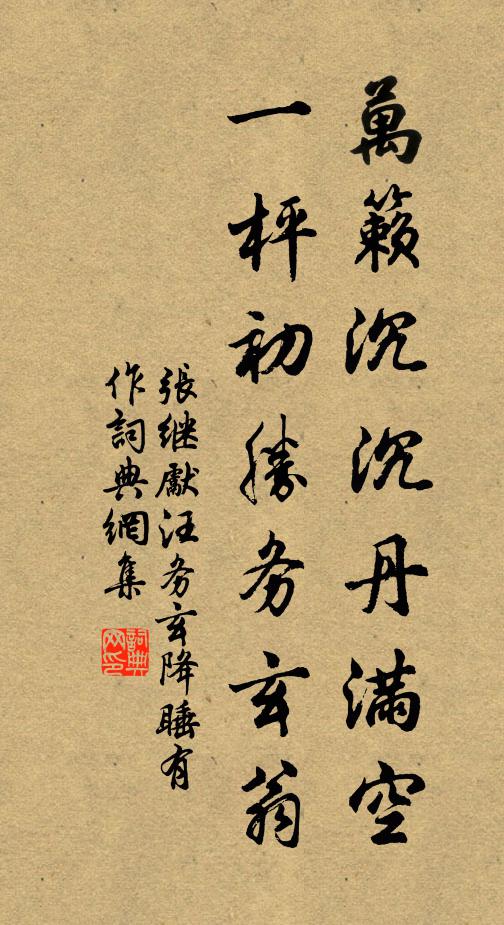 萬籟沉沉丹滿空
一枰初勝务玄翁
張继獻汪务玄降睡有
作詞典網集
詞典网印